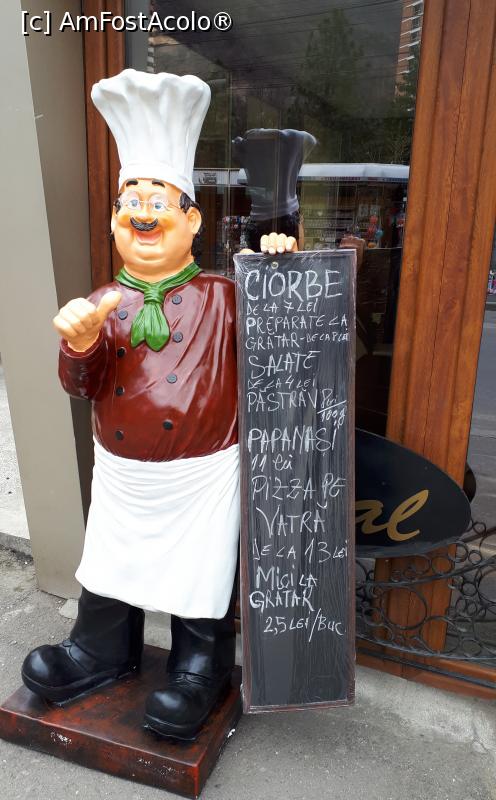 [c] AmFostAcolo®
CIORBE
DE LA 7 LEI
PREPARATE LA
GRĂTAR-DE LA 8 LEI
SALATE
DE LA 4 LEI
PĂSTRĂV 8 lei/100g
PAPANAȘI
11 lei
PIZZA PE
VATRĂ
DE LA 13 LEI
Mici LA
GRĂTAR
2,5 LEI/BUC
al